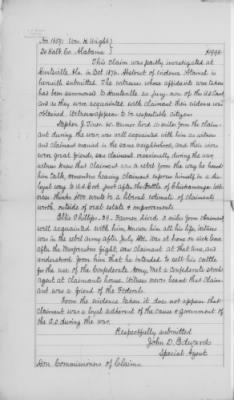 No. 1509. Wm. H. Wright }
De Kalb Co. Alabama } $944.
This claim was partly investigated at
Huntsville Ala. in Oct. 1876. Abstract of evidence thereat is
herewith submitted. The witness whose affidavit was taken
has been summoned to Huntsville as jury-man of the U.S. Court
and as they were acquainted with claimant their evidence was
obtained. Witnesses appear to be respectable citizens
Stephen J. Farmer lived miles from the claim-
ant during the war was well acquainted with him as witness
and claimant married in the same neighborhood, and they were
very great friends, saw claimant occasionally during the war,
witness knows that claimant was a rebel from the way he heard
him talk, remembers hearing claimant express himself in a dis-
loyal way to U.S. Govt. just after the battle of Chickamauga
thinks
worth, outside of real estate & improvements.
Ellis Phillips, 39, Farmer, lived 3 miles from claimant
well acquainted with him, known him all his life, witness
was in the rebel army after July, was at home on sick leave
after the Murfreesboro fight, saw claimant at that time, and
understood from him that he intended to sell his cattle
for the use of the Confederate Army, met a Confederate stock
agent at claimants house. Witness never heard that Claim-
ant was a friend of the Federals.
From the evidence taken it does not appear that
claimant was a loyal adherent of the cause & government of
the U.S. during the war.
Respectfully submitted
John D. Edwards
Special Agent
Hon Commissioners of Claims